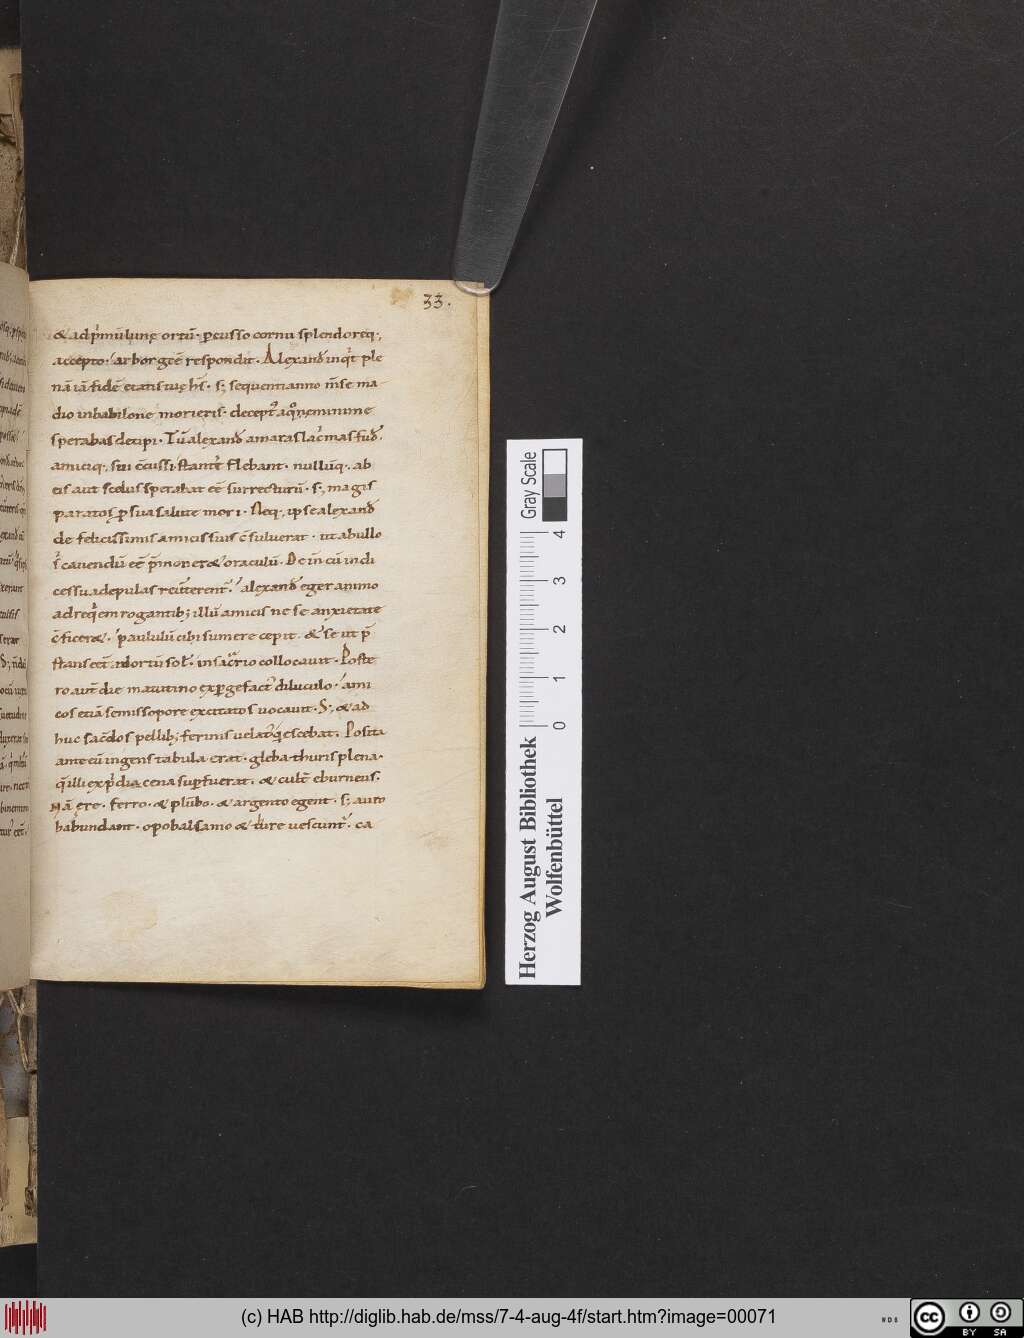 33.
& ad p̓mū lunę ortū· ꝑcusso cornu splendoreq·,
accepto· arbor gͨē respondit· Alexand̄ inqͥt ple
nā iā fidē etatis tuę hͤs· s; sequenti anno m̄se ma
dio in babilone morieris· decept᷒ aq̊ nęminime
sperabas decipi· Tū alexand̄ amaras lac̓mas fud̄·
amiciq·, sui c̄cussi flebant· nullūq·, ab
eis aut scelus sperabat eē surrecturū· s;, magis
paratos ꝑ sua salute mori· Neq·, ipse alexand̄
de felicissimis amicis suis c̄suluerat· ut ab ullo
cauendū eē p̄moner& oraculū· De in cū indi
cessu ad epulas rediterent᷒· alexand̄ eger animo
ad req̓em rogantib; illū amicis ne se anxietate
c̄ficer&· paululū cibi sumere cepit· & se ut p̄
stans eēt ad ortū sol̓· in sac̓rio collocauit· Poste
ro aut̄ die matutino exꝑgefact᷒ diluculo· ami
cos etiā semissopore excitatos uocauit· S;, & ad
huc sac̄dos pellib; ferinis uelat᷒ q̓escebat· Posita
ante eū ingens tabula erat· gleba thuris plena·
q̄ illi ex p̓dia cena suꝑfuerat· & cult̄ eburneus·
Nā ęre· ferro· & plūbo· & argento egent· s;, auro
habundant· opobalsamo & ture uescunt᷒· ca
Gray Scale
0 1 2 3 4
Herzog August Bibliothek
Wolfenbüttel
(c) HAB http://diglib.hab.de/mss/7-4-aug-4f/start.htm?image=00071
cc BY SA